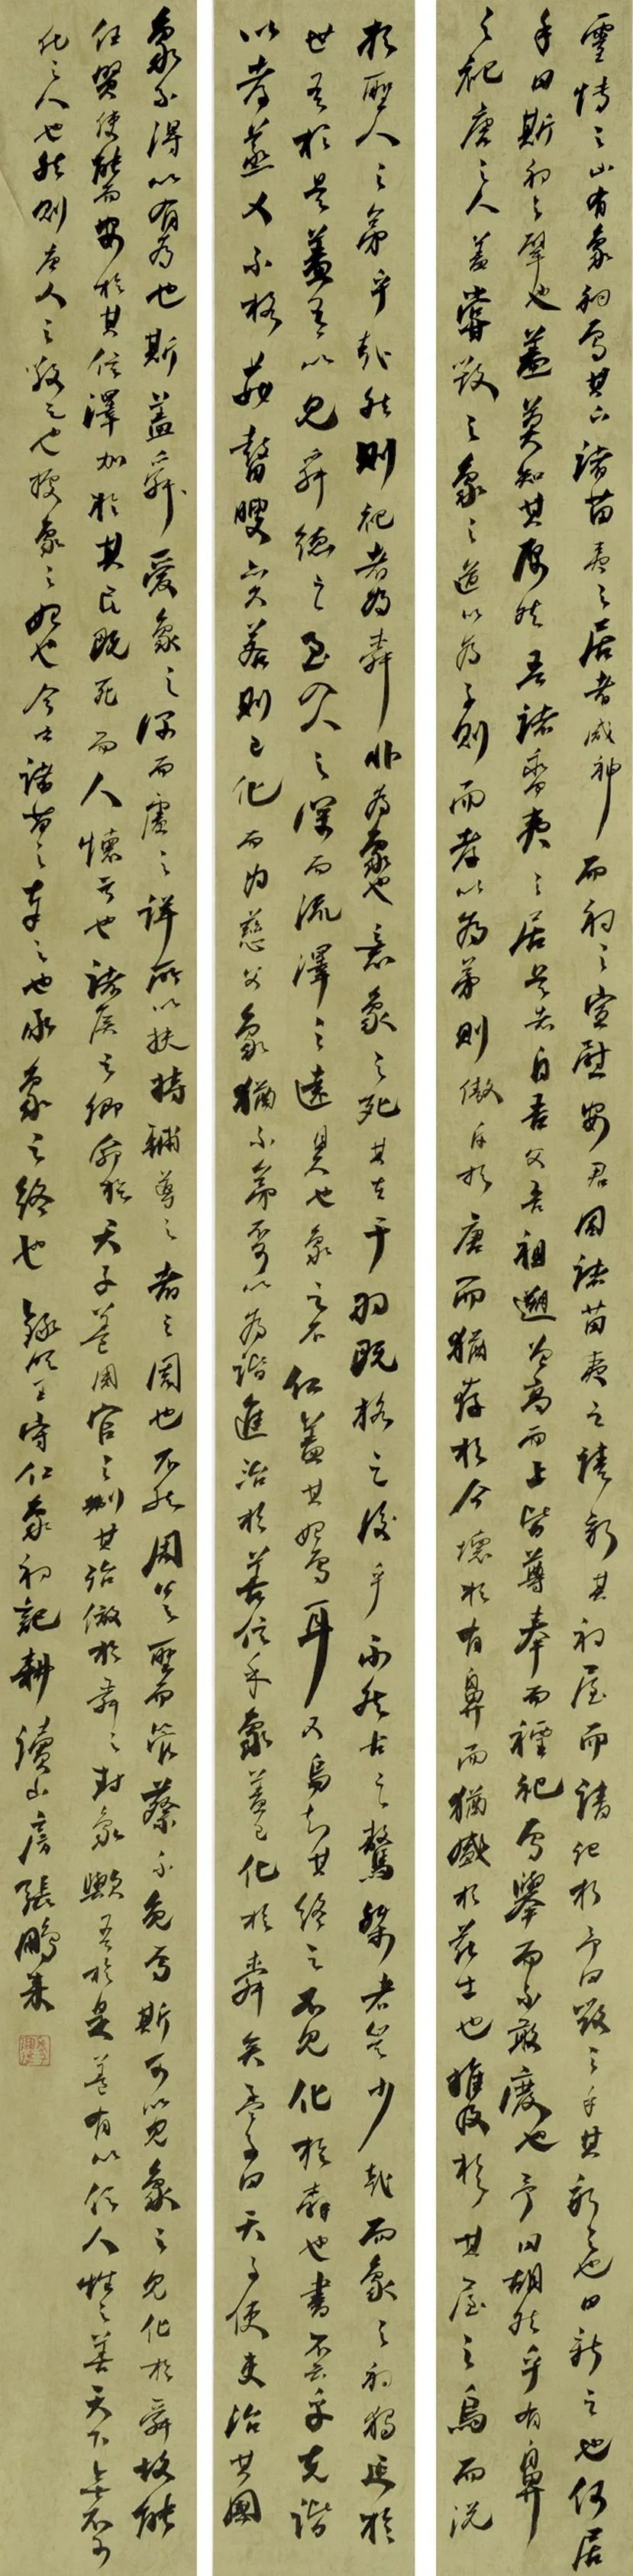 靈博之山有象祠焉其下諸苗夷之居者咸神而祠之宣慰安君因諸苗夷之請新其祠屋而請記於予曰毀之乎其新之也曰新之也何居
乎曰斯祠之肇也蓋莫知其原然吾諸蠻夷之居是者自吾父吾祖遡曾高而上皆尊奉而禋祀焉舉而不敢廢也予曰胡然乎有鼻
之祀唐之人蓋嘗毀之象之道以為子則而孝以為弟則傲斥於唐而猶存於今壞於有鼻而猶盛於茲土也推及於其屋之烏而況
於聖人之弟乎哉然則祀者為舜非為象也意象之死其在干羽既格之後乎不然古之驁桀者豈少哉而象之祠獨延於
世吾於是蓋有以見舜德之至入人之深而流澤之遠且久也象之不仁蓋其始焉耳又烏知其終之不見化於舜也書不云乎克諧
以孝烝乂不格姦瞽瞍亦若則已化而為慈父象猶不弟不可以為諧進治於善信乎象蓋已化於舜矣孟子曰天子使吏治其國
象不得以有為也斯蓋舜愛象之深而慮之詳所以扶持輔導之者之周也不然周公之聖而管蔡不免焉斯可以見象之見化於舜故能
任賢使能而安於其位澤加於其民既死而人懷之也諸侯之卿命於天子蓋周官之制其殆倣於舜之封象歟吾於是蓋有以信人性之善天下無不可
化之人也然則唐人之毀之也據象之始也今之諸苗之奉之也承象之終也 錄明王守仁象祠記耕讀山房張鵬